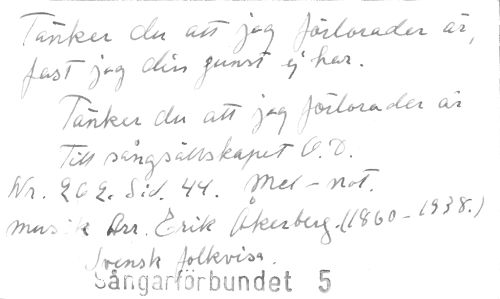 Tänker du att jag förlorader är,
fast jag din gunst ej har.
Tänker du att jag förlorader är
Till sångsällskapet O.D.
Nr. 262. Sid. 44. Mel-not.
musik Arr. Erik Åkerberg. (1860-1938.)
Svensk folkvisa.
Sångarförbundet 5